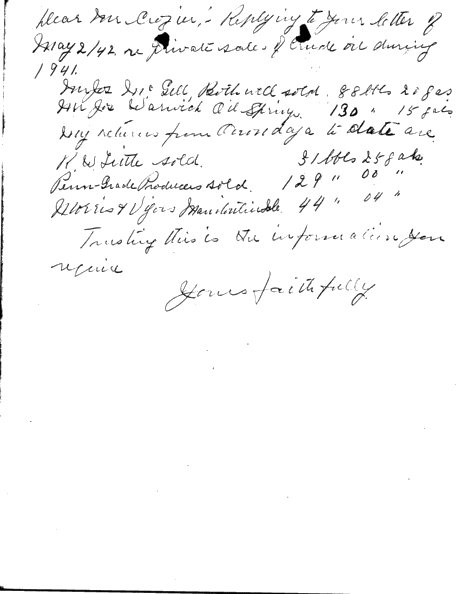 Dear Mr Crozier,:- Replying to your letter of
May 2/42 re private sales of crude oil during
1941.
Mr Jos Mc Gill Bothwell sold 88 bbls 20 gas
Mr Jos Warwick Oil Springs. 130 " 15 gals
My returns from Onondaga to date are
R W Little sold. 31 bbls 25 gals.
Penn-Grade Producers sold. 129 " 00 "
Morris & Vyors Manitoulin Isle. 44 " 04 "
Trusting this is the information you
require
Yours faithfully